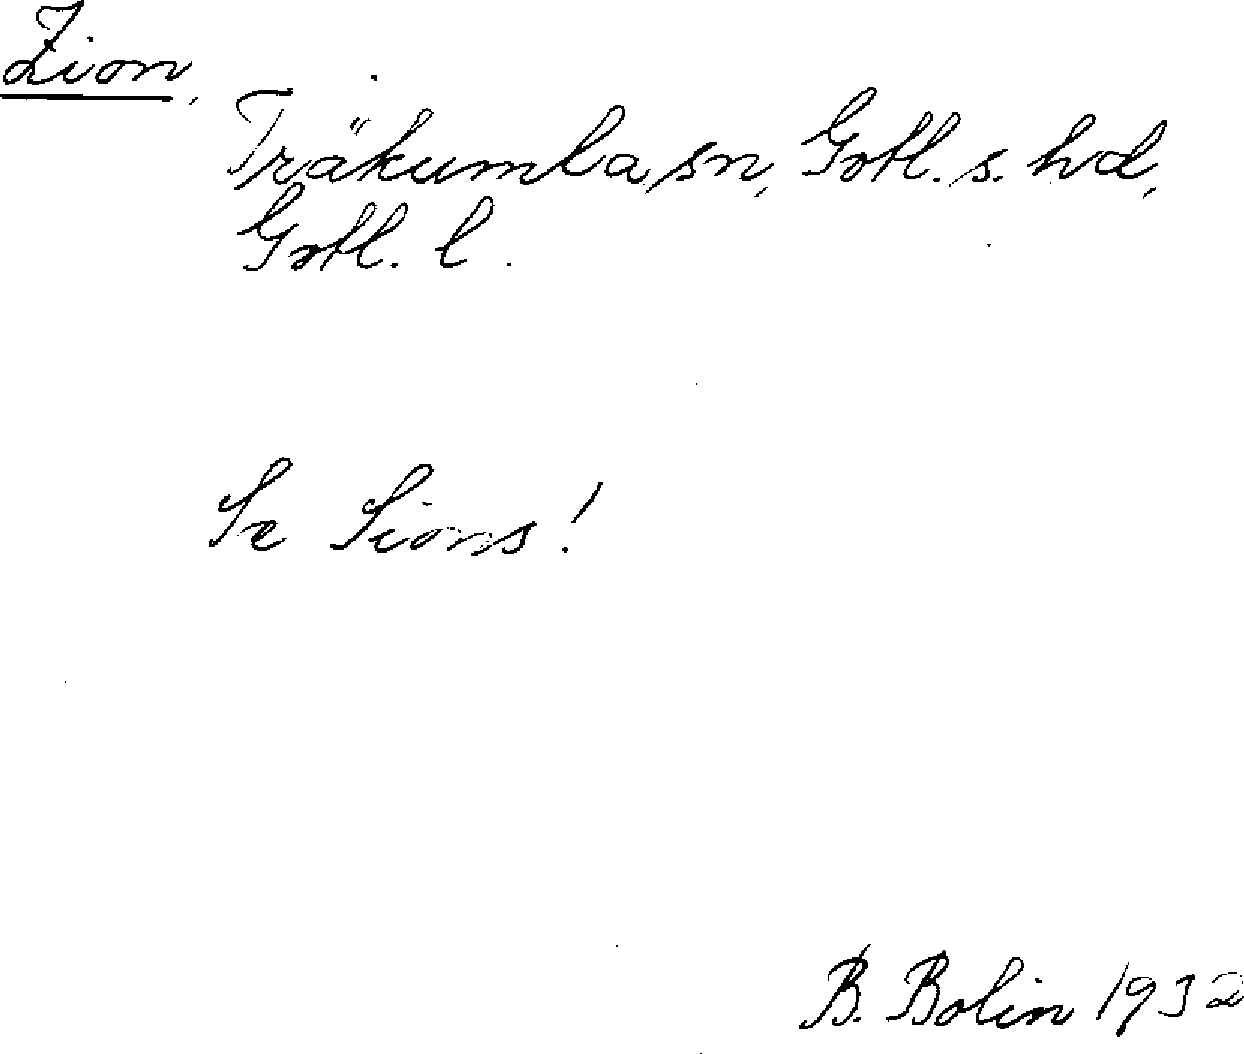 Zion,
Träkumla sn, Gotl. s. hd,
Gotl. l.
Se Sions!
B. Bolin 1932